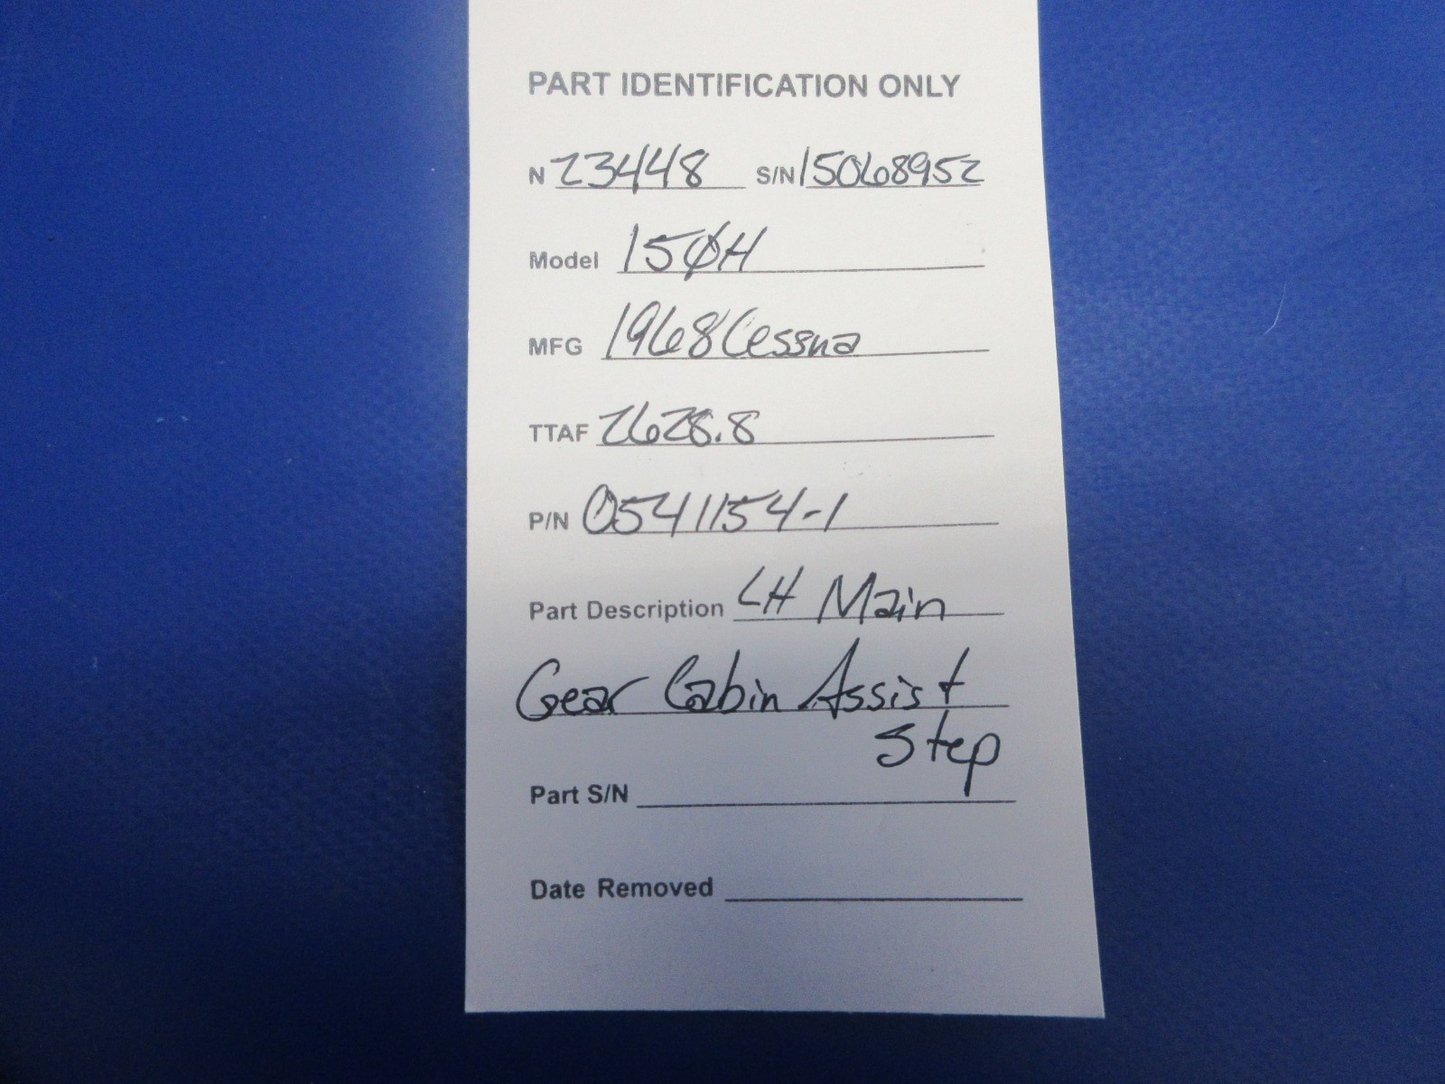 PART IDENTIFICATION ONLY
N 23448 S/N 15068952
Model 150H
MFG 1968 Cessna
TTAF 2628.8
P/N 0541154-1
Part Description LH Main
Gear Cabin Assist
Step
Part S/N
Date Removed